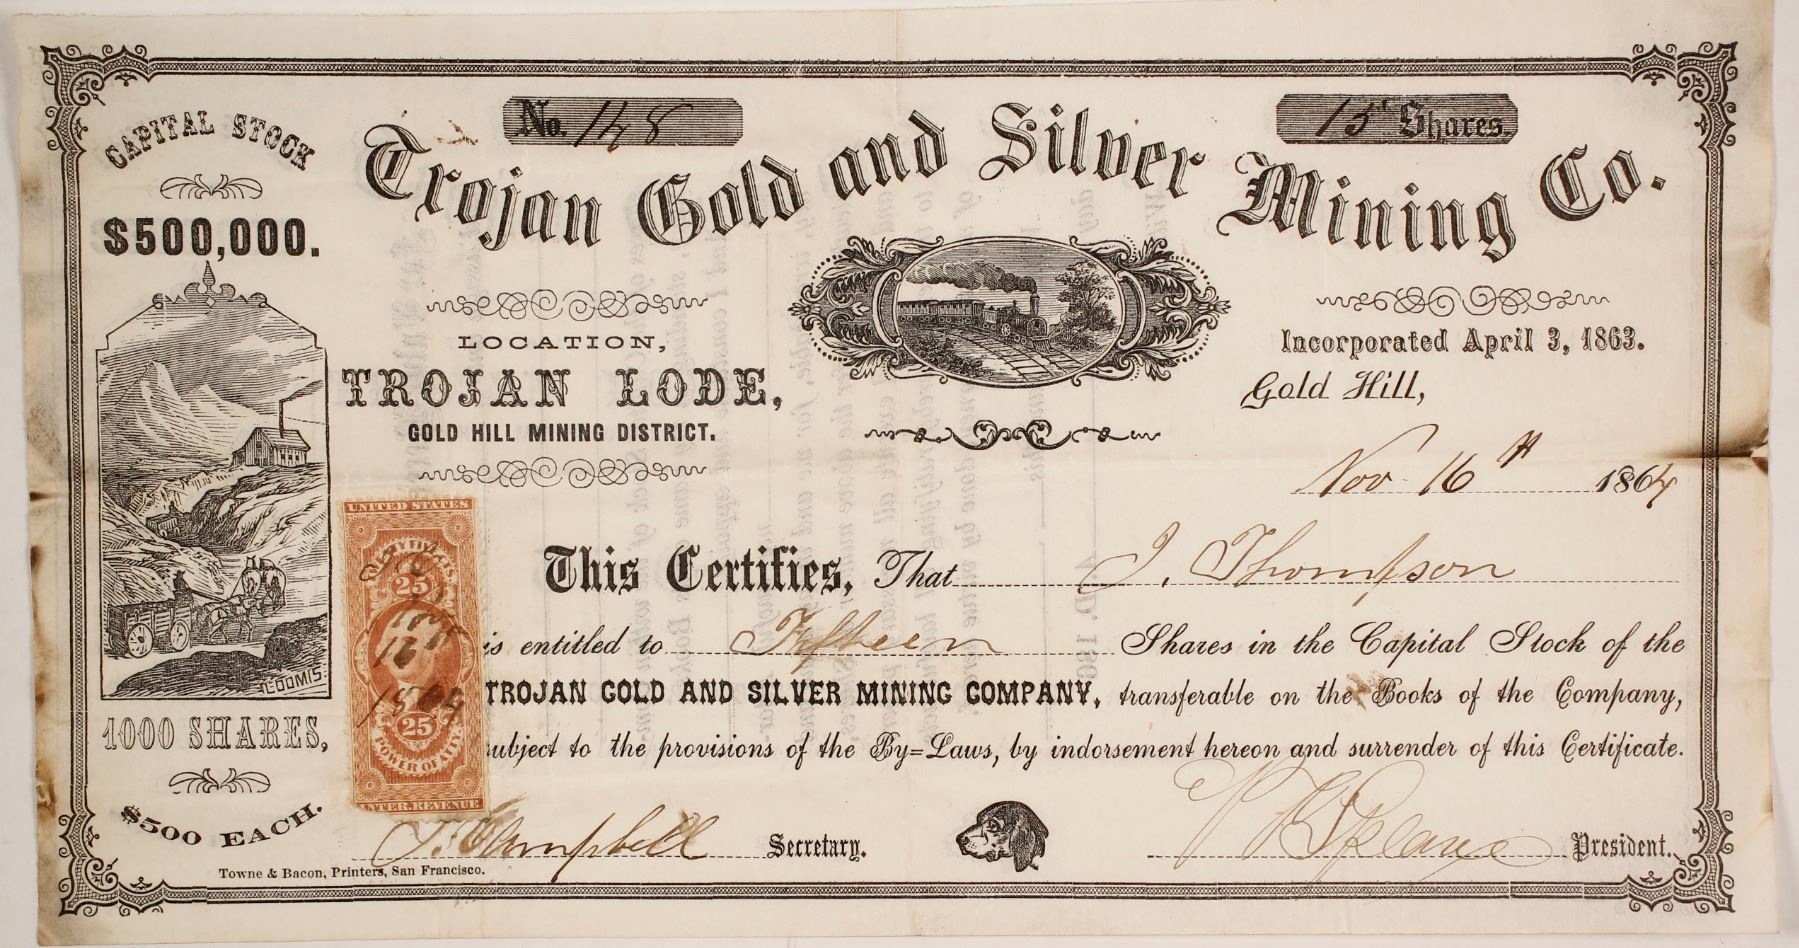 CAPITAL STOCK
$500,000.
No. 148
15 Shares
Trojan Gold and Silver Mining Co.
LOCATION,
TROJAN LODE,
GOLD HILL MINING DISTRICT.
Incorporated April 3, 1863.
Gold Hill,
Nov 16th 1864
This Certifies, That J. Thompson
is entitled to Fifteen Shares in the Capital Stock of the
TROJAN GOLD AND SILVER MINING COMPANY, transferable on the Books of the Company,
ubject to the provisions of the By=Laws, by indorsement hereon and surrender of this Certificate.
LOOMIS.
1000 SHARES,
$500 EACH.
UNITED STATES
25
Nov
16
1864
25
POWER OF ATT'Y.
INTER. REVENUE
Campbell Secretary.
President.
Towne & Bacon, Printers, San Francisco.